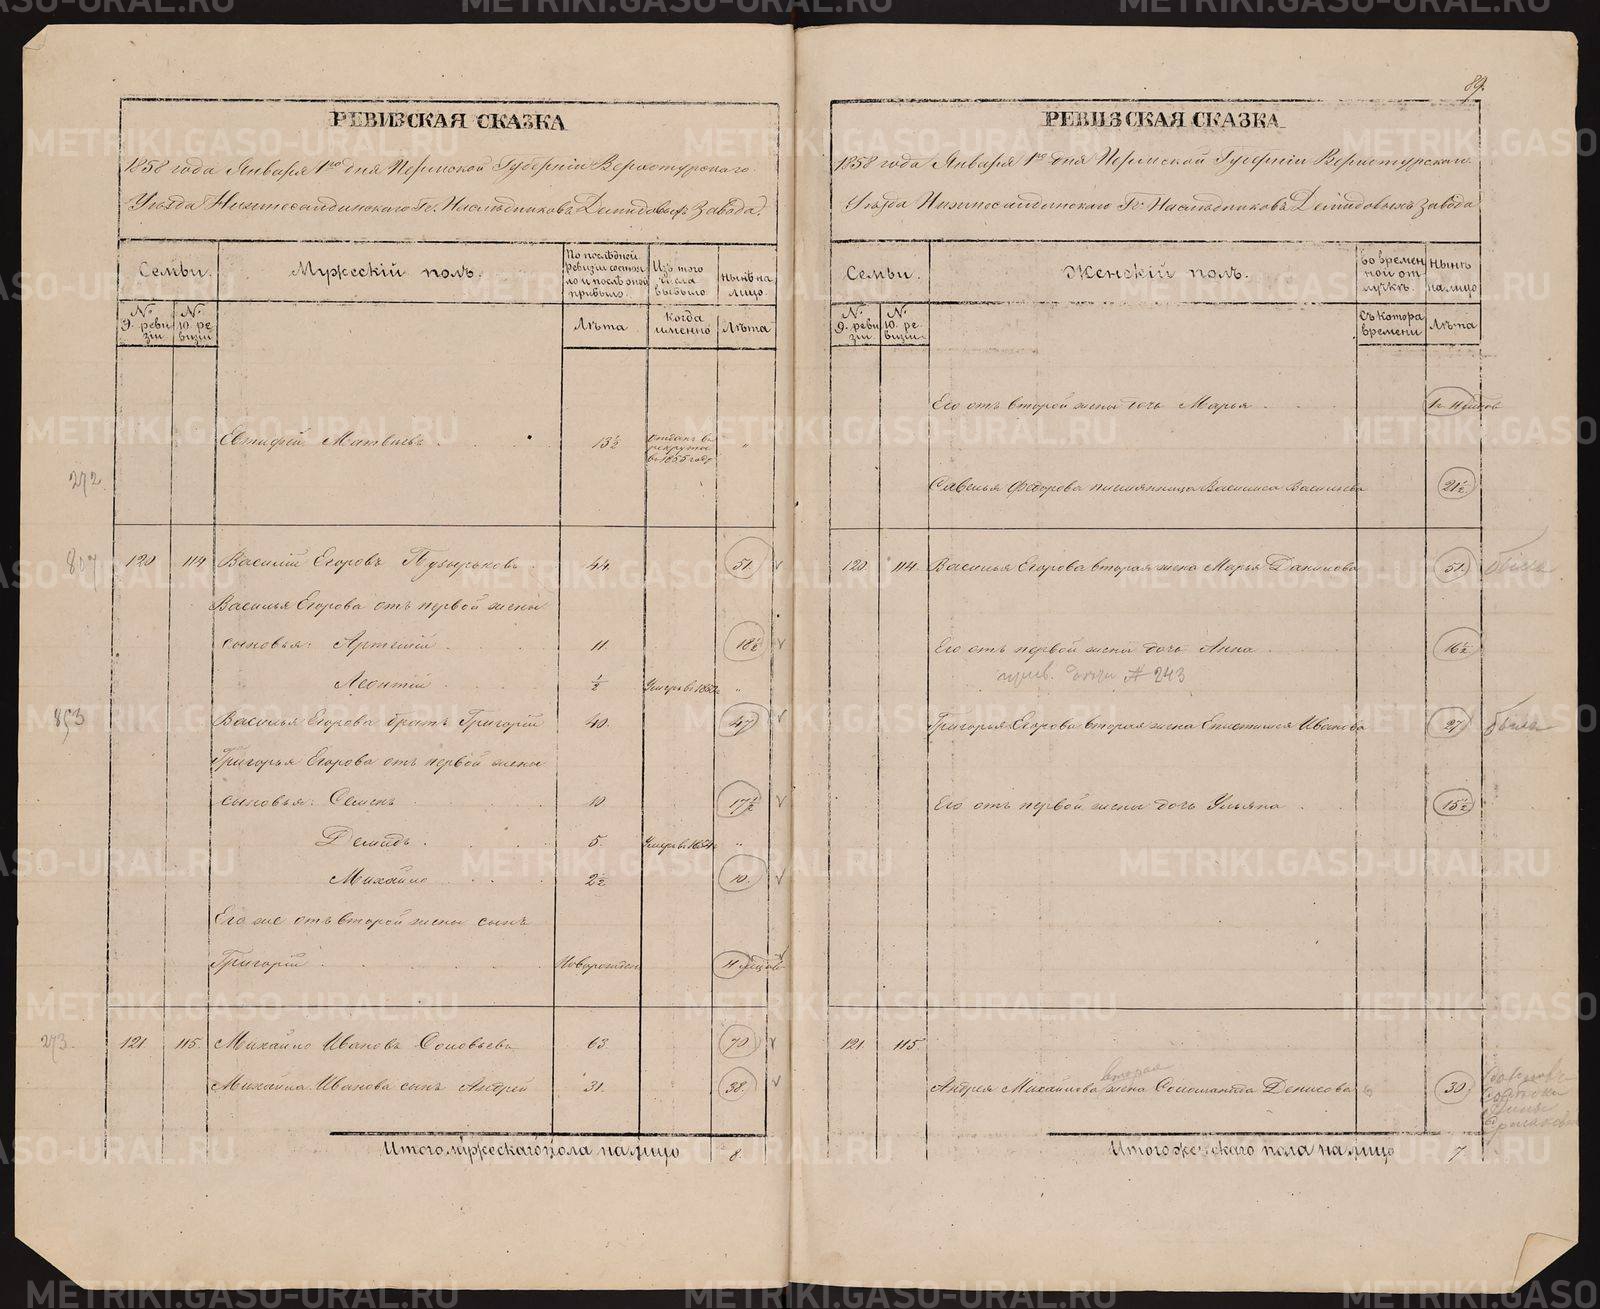 РЕВИЗСКАЯ СКАЗКА
1858 года Января 1го дня Пермской Губернiи Верхотурскаго
Уѣзда Нижнесалдинскаго Гг. Наслѣдниковъ Демидовыхъ Завода.
Семьи.
Мужескiй полъ.
По послѣдней ревизiи состояло и послѣ оной прибыло.
Изъ того числа выбыло
Нынѣ на лицо.
№ 9. ревизiи
№ 10. ревизiи
Лѣта
Когда именно
Лѣта
Евтифей Матвѣевъ 13½ отданъ въ рекруты въ 1855 году "
272.
807 120 114 Василiй Егоровъ Пузырьковъ 44. 51. v
Василья Егорова отъ первой жены
сыновья: Артемiй 11. 18½ v
Леонтiй ½ Умеръ въ "
853 Василья Егорова братъ Григорiй 40. 47 v
Григорья Егорова отъ первой жены
сыновья: Семенъ 10 17½ v
Демидъ 5. Умеръ въ "
Михайло 2½ 10. v
Его же отъ второй жены сынъ
Григорiй Новорожден
273. 121. 115. Михайло Ивановъ Соловьевъ 63. 70 v
Михайла Иванова сынъ Андрей 31. 38. v
Итого мужескаго пола на лицо 8.
89.
РЕВИЗСКАЯ СКАЗКА
1858 года Января 1го дня Пермской Губернiи Верхотурскаго
Уѣзда Нижнесалдинскаго Гг. Наслѣдниковъ Демидовыхъ Завода
Семьи.
Женскiй полъ.
Во временной отлучкѣ.
Нынѣ на лицо
№ 9. ревизiи
№ 10. ревизiи
Съ котора времени
Лѣта
Его отъ второй жены дочь Марья
Савелья Федорова племянница Василиса Васильева 21½
120. 114. Василья Егорова вторая жена Марья Данилова 51.
Его отъ первой жены дочь Анна 16½
# 243
Григорья Егорова вторая жена Епистимея Иванова 27
Его отъ первой жены дочь Ульяна 15½
121. 115.
вторая
Андрея Михайлова жена Соломанида Денисова 30
Итого женскаго пола на лицо 7
METRIKI.GASO-URAL.RU